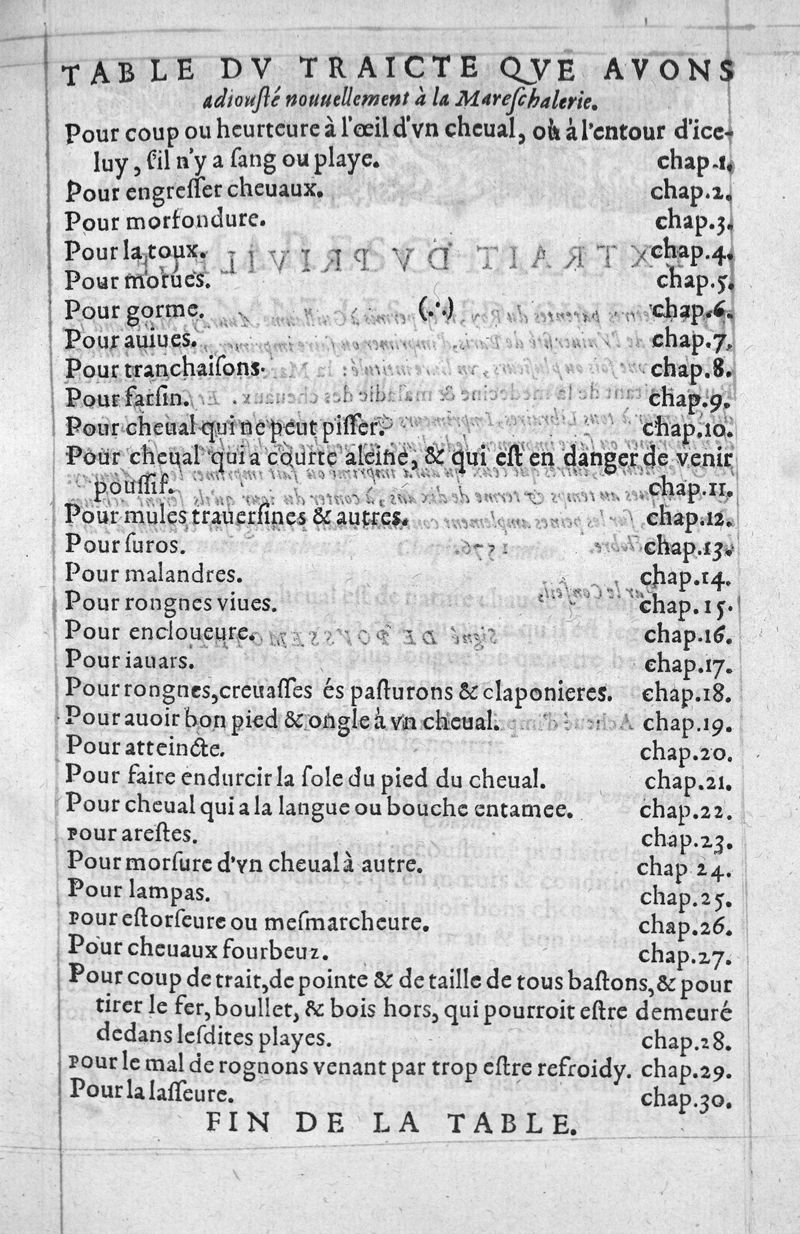 TABLE DV TRAICTE QVE AVONS
adiouſté nouuellement à la Mareſchalerie.
Pour coup ou heurteure à l'œil d'vn cheual, où à l'entour d'ice-
luy, ſ'il n'y a ſang ou playe. chap.1.
Pour engreſſer cheuaux. chap.2.
Pour morfondure. chap.3.
Pour la toux. chap.4.
Pour morues. chap.5.
Pour gorme. (.·.) chap.6.
Pour auiues. chap.7.
Pour tranchaiſons. chap.8.
Pour farſin. chap.9.
Pour cheual qui ne peut piſſer. chap.10.
Pour cheual qui a courte aleine, & qui eſt en danger de venir
pouſſif. chap.11.
Pour mules trauerſines & autres. chap.12.
Pour ſuros. chap.13.
Pour malandres. chap.14.
Pour rongnes viues. chap.15.
Pour encloueure. chap.16.
Pour iauars. chap.17.
Pour rongnes, creuaſſes és paſturons & claponieres. chap.18.
Pour auoir bon pied & ongle à vn cheual. chap.19.
Pour atteincte. chap.20.
Pour faire endurcir la ſole du pied du cheual. chap.21.
Pour cheual qui a la langue ou bouche entamee. chap.22.
Pour areſtes. chap.23.
Pour morſure d'vn cheual à autre. chap 24.
Pour lampas. chap.25.
Pour eſtorſeure ou meſmarcheure. chap.26.
Pour cheuaux fourbeuz. chap.27.
Pour coup de trait, de pointe & de taille de tous baſtons, & pour
tirer le fer, boullet, & bois hors, qui pourroit eſtre demeuré
dedans leſdites playes. chap.28.
Pour le mal de rognons venant par trop eſtre refroidy. chap.29.
Pour la laſſeure. chap.30.
FIN DE LA TABLE.